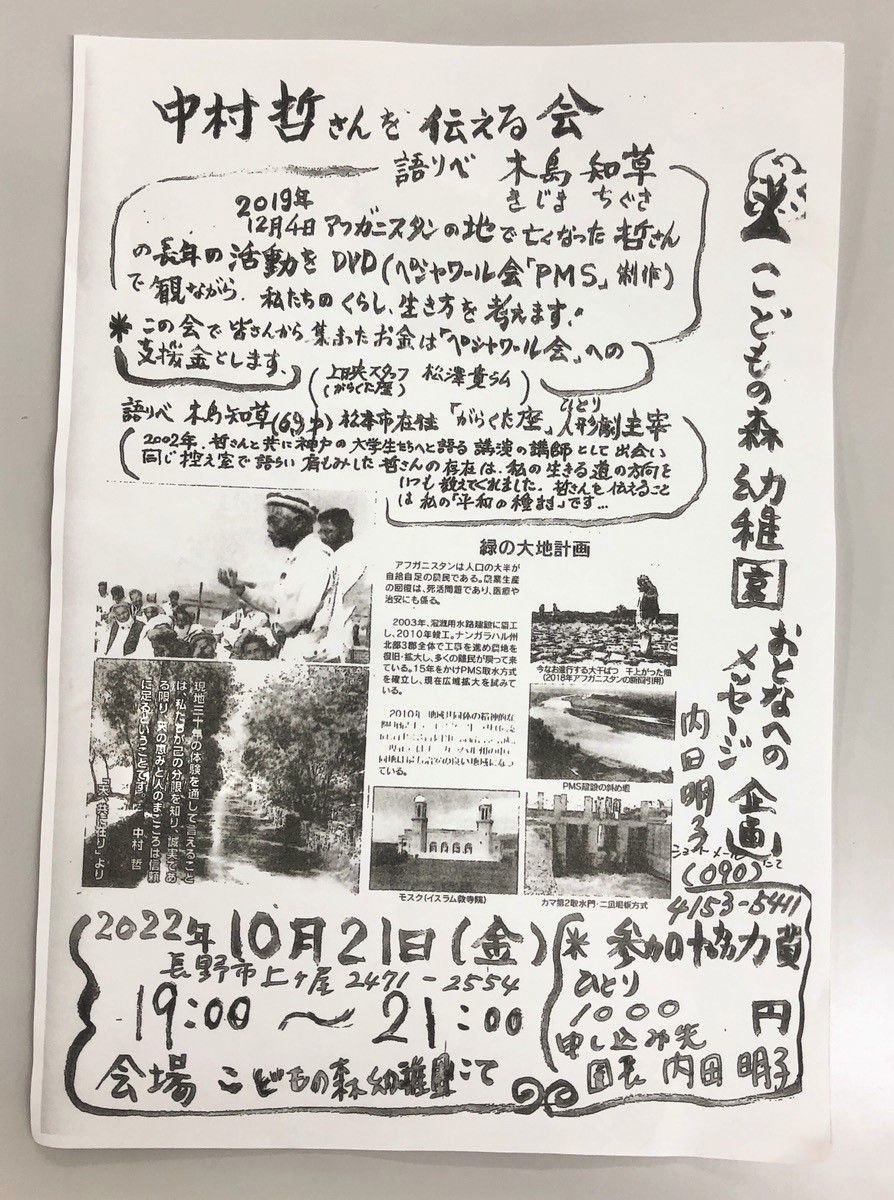 中村哲さんを伝える会
語りべ 木島 知草
きじま ちぐさ
2019年
12月4日アフガニスタンの地で亡くなった哲さん
の長年の活動をDVD(ペシャワール会「PMS」制作)
で観ながら、私たちのくらし、生き方を考えます!
*この会で皆さんから集まったお金は「ペシャワール会」への
支援金とします。
上映スタッフ
(がらくた座)
語りべ 木島知草(69才)松本市在住「がらくた座」ひとり人形劇主宰
2002年、哲さんと共に神戸の大学生たちへと語る講演の講師として出会い
同じ控え室で語らい肩もみした哲さんの存在は、私の生きる道の方向を
いつも教えてくれました。哲さんを伝えること
は私の「平和の種まき」です…
緑の大地計画
アフガニスタンは人口の大半が
自給自足の農民である。農業生産
の回復は、死活問題であり、医療や
治安にも係る。
2003年、灌漑用水路建設に着工
し、2010年竣工。ナンガラハル州
北部3郡全体で工事を進め農地を
復旧・拡大し、多くの難民が戻って来
ている。15年をかけPMS取水方式
を確立し、現在広域拡大を試みて
いる。
2010年 地域共同体の精神的な
ている。
今なお進行する大干ばつ 干上がった畑
(2018年アフガニスタンの新聞引用)
PMS建設の斜め堰
モスク(イスラム教寺院)
カマ第2取水門・二重堰板方式
現地三十年の体験を通して言えること
は、私たちが己の分限を知り、誠実であ
る限り、天の恵みと人のまごころは信頼
に足るということです。 中村 哲
「天、共に在り」より
こどもの森幼稚園
おとなへの
メッセージ企画
内田明子
ショートメールにて
(090)
4153-5411
2022年10月21日(金)
長野市上ヶ屋2471-2554
19:00〜21:00
会場 こどもの森幼稚園にて
*参加協力費
ひとり
1000円
申し込み先
園長 内田明子